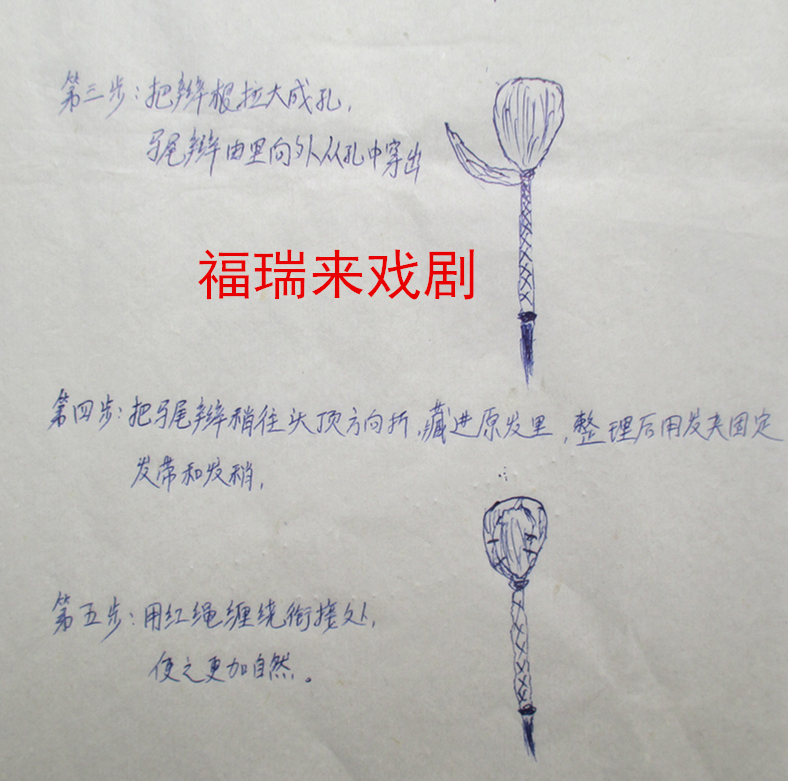 第三步：把辫根拉大成孔，
马尾辫由里向外从孔中穿出
福瑞来戏剧
第四步：把马尾辫稍往头顶方向折，藏进原发里，整理后用发夹固定
发带和发稍，
第五步：用红绳缠绕衔接处，
使之更加自然。